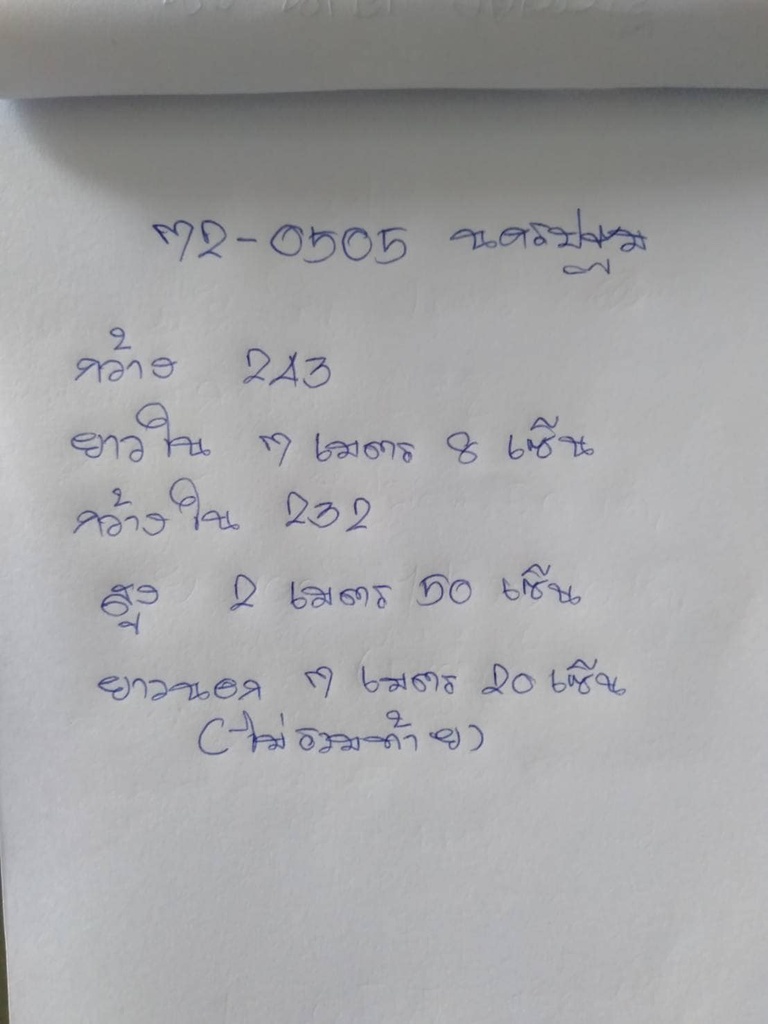 72-0505 นครปฐม
กว้าง 243
ยาวใน 7 เมตร 8 เซ็น
กว้างใน 232
สูง 2 เมตร 50 เซ็น
ยาวนอก 7 เมตร 20 เซ็น
(ไม่รวมท้าย)